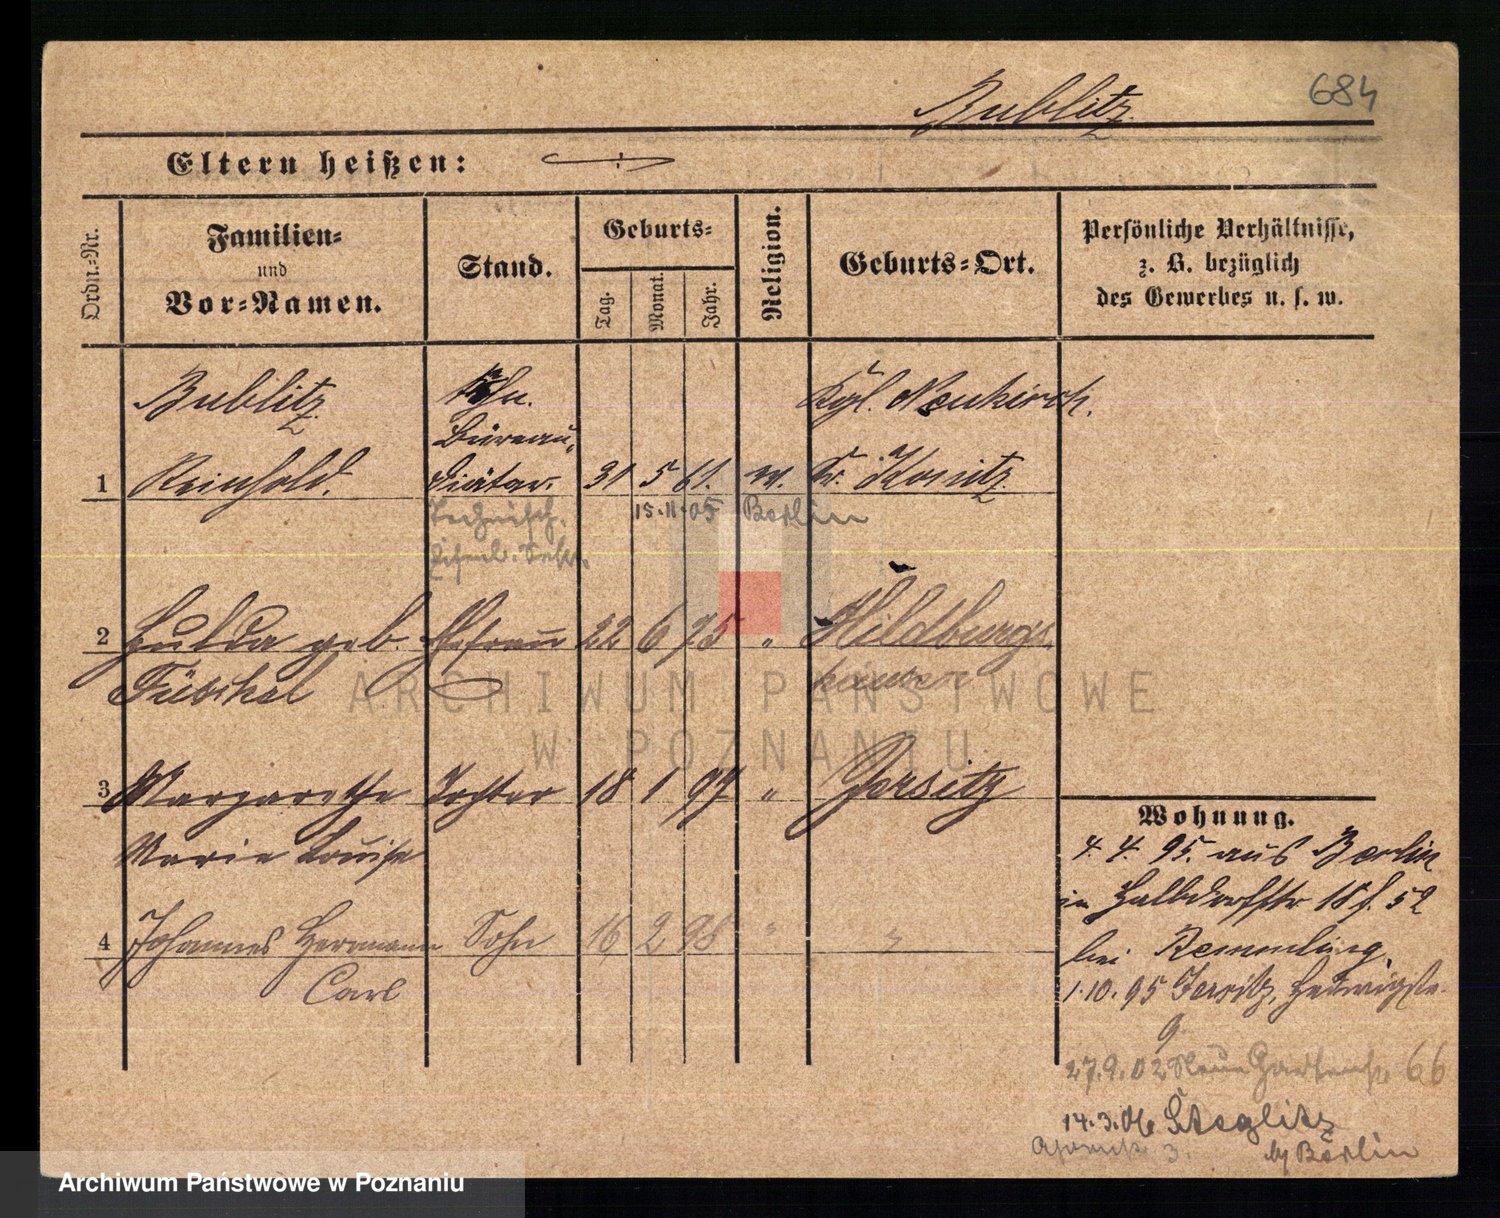 684
Bublitz
Eltern heißen:
Ordn.-Nr.
Familien-
und
Vor-Namen.
Stand.
Geburts-
Tag.
Monat.
Jahr.
Religion.
Geburts-Ort.
Persönliche Verhältnisse,
z. B. bezüglich
des Gewerbes u. s. w.
Bublitz
Kgl. Neukirch.
Büreau-
1 Reinhold. Diätar. 31 5 61. ev. Kr. Konitz
Technisch. 15.11.05 Berlin
Eisenb. Sekr.
2 Hulda geb. Ehefrau 22 6 75 " Hildburg
hausen
3 Margarethe Tochter 18 1 97 " Jersitz
Marie Louise
4 Johannes Hermann Sohn 16 2 98 " "
Carl
Wohnung.
4. 4. 95. aus Berlin
in Halbdorfstr 18 f. 52
bei Remmling.
1.10.95 Jersitz, Hedwigstr.
9
27.9.02 Neue Gartenstr 66
14.3.06 Steglitz
3. by Berlin
ARCHIWUM PAŃSTWOWE
W POZNANIU
Archiwum Państwowe w Poznaniu